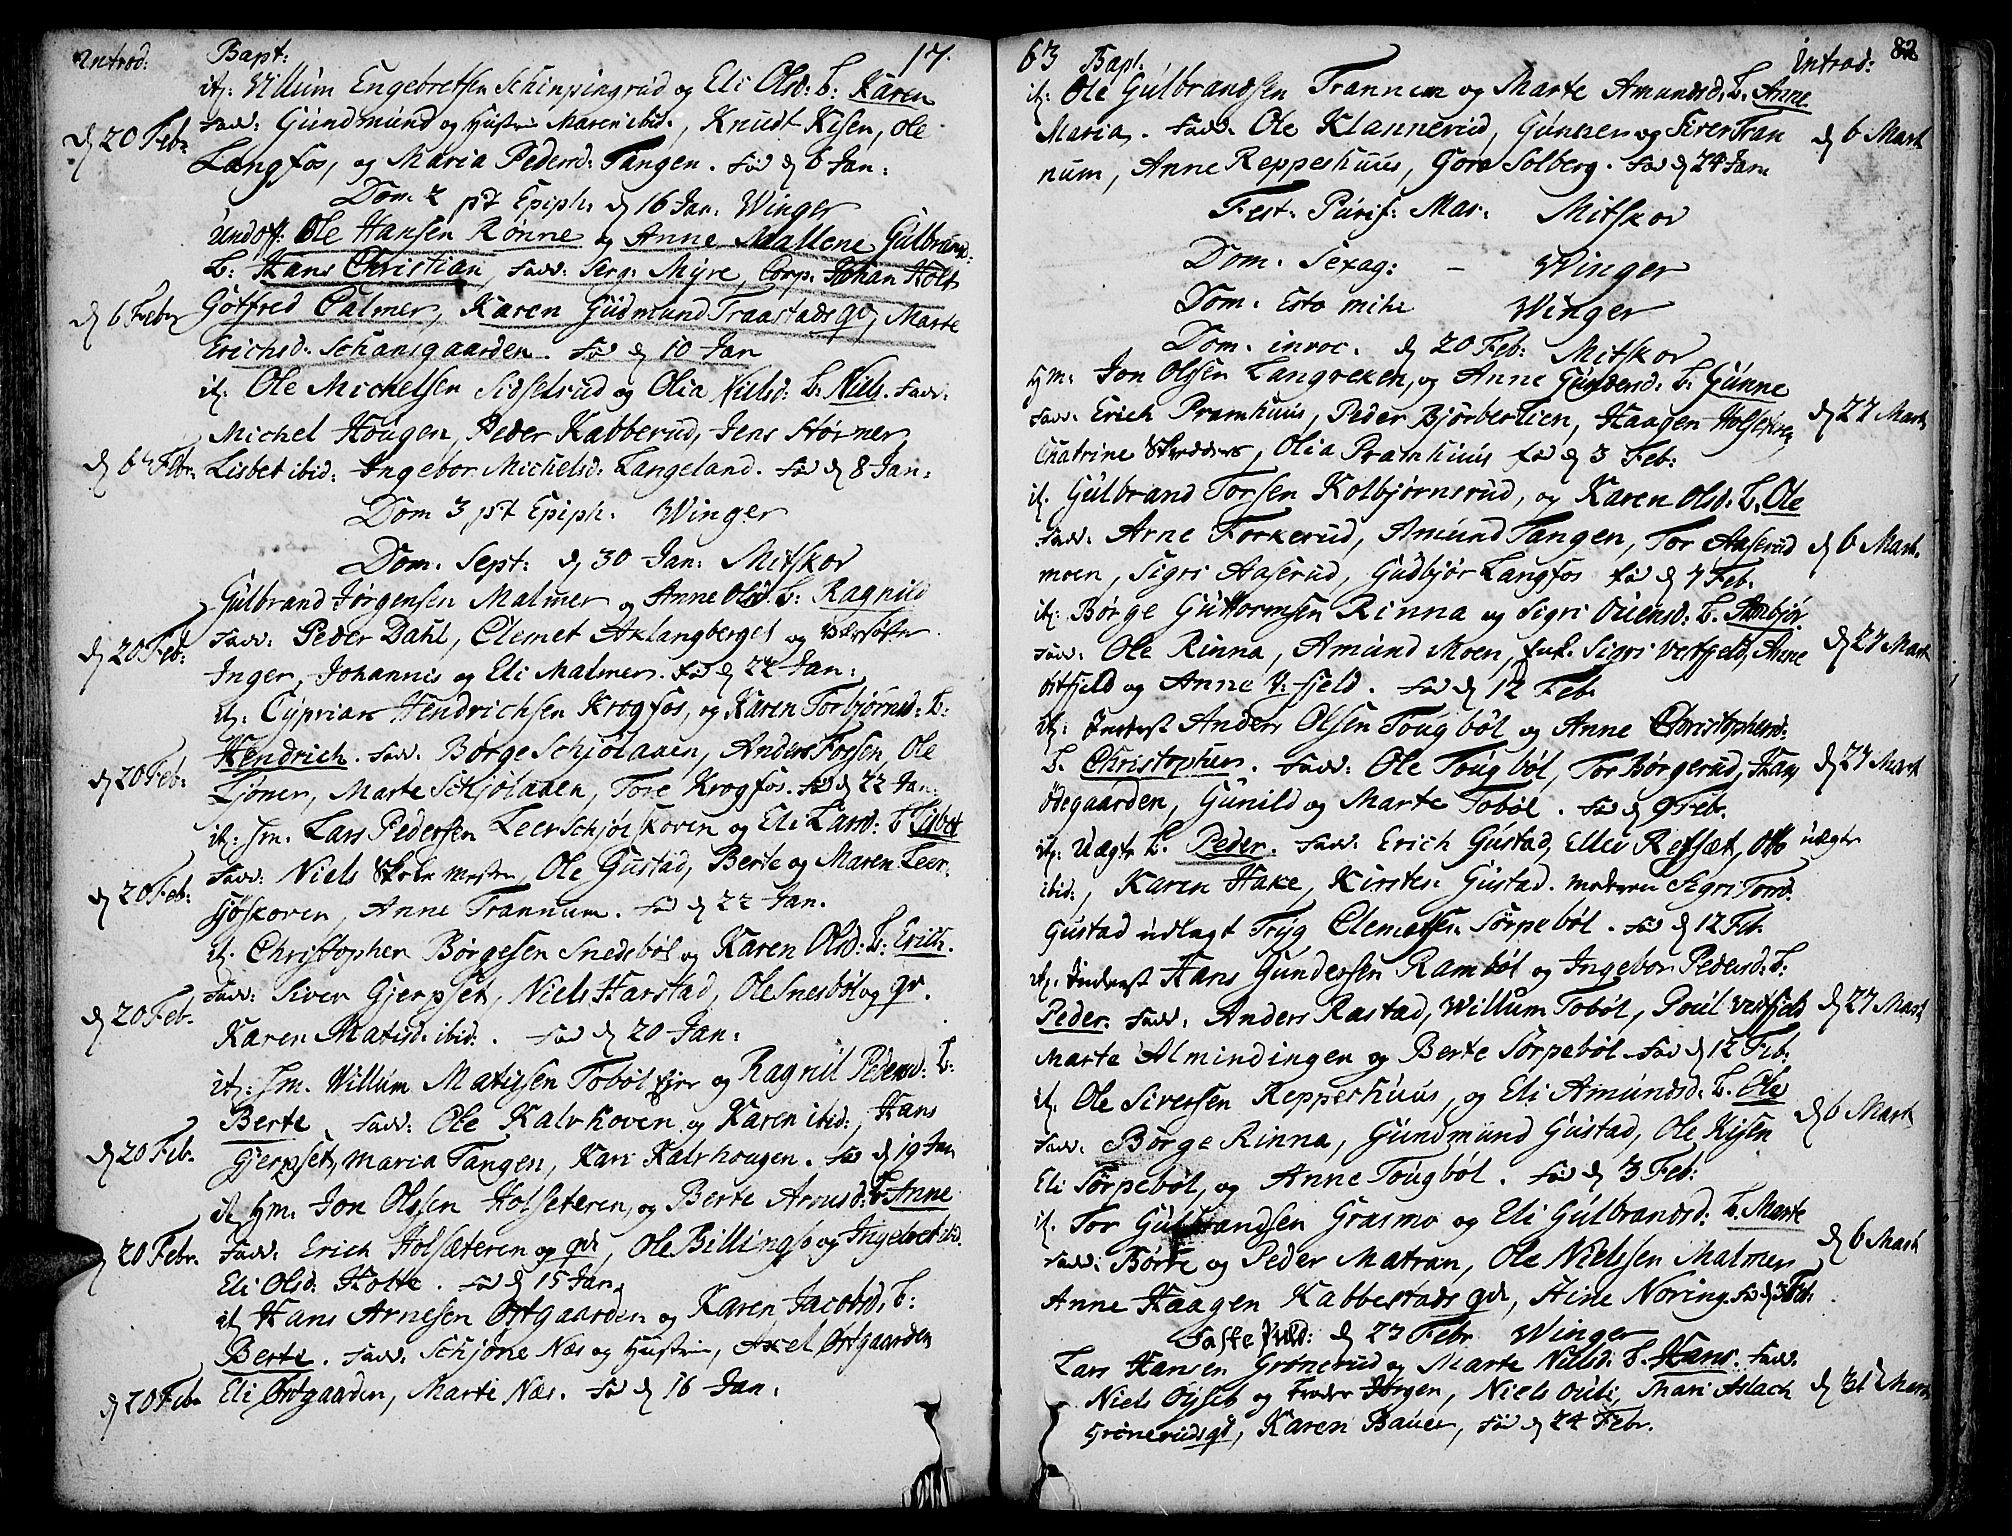 Introd: Bapt: 17.
it: Willum Engebretsen Schinpingrud og Eli Olsd: L: Karen
d 20 Febr. Fadd: Gundmund og Hustru Maren ibid:, Knudt Kisen, Ole
Langfos, og Maria Pedersd: Tangen. fød d 6 Jan:
Dom: 2 p.t Epiph: d 16 Jan: Winger
Und off: Ole Hansen Rønne og Anne Mallene Gulbrand:
L: Hans Christian, Fadd: Serg: Myre, Corp: Johan Holt
d 6 Febr Gotfred Palmer, Karen Gudmund Traastads qv, Marte
Erichsd: Schansgaarden. fød d 10 Jan
it: Ole Michelsen Sidselrud og Olia Nielsd: L: Niels. Fadd:
Michel Hougen, Peder Kabberud, Jens Størner
d 6 Febr. Lisbet ibid: Ingebor Michelsd: Langeland. fød d 8 Jan:
Dom 3 p.t Epiph: Winger
Dom: Sept: d 30 Jan: Mitskov
Gulbrand Jørgensen Malmer og Anne Olsd: L: Ragnild
d 20 Feb: Fadd: Peder Dahl, Clemet Aklangberget og
Inger, Johannis og Eli Malmer. fød d 22 Jan:
it: Cyprian Hendrichsen Krogfos, og Karen Torbjørnsd: L:
d 20 Feb: Hendrich. Fadd: Børge Schjølaaen, Anders Fossen, Ole
Ljøner, Marte Schjølaaen, Tore Krogfos. fød d 22 Jan:
it: Hm. Lars Pedersen Leerschjøskoven og Eli Larsd: L Lisbet
d 20 Feb: Fadd: Niels Skolemester, Ole Gustad, Berte og Maren Leer
sjøskoven, Anne Trannum. fød d 22 Jan.
it. Christopher Børgesen Snedsbøl og Karen Olsd: L: Erich.
d 20 Feb. Fadd: Siver Gjerpset, Niels Harstad, Ole Snesbøl og qv.
Karen Matisd: ibid:. fød d 20 Jan:
it: Hm. Willum Matisen Tobøl Ejer og Ragnil Pedersd: L:
d 20 Feb. Berte, Fadd: Ole Kalvhoven og Karen ibid:, Hans
Gjerpset, Maria Tangen, Kari Kalvhougen. fød d 19 Jan
it Hm: Jon Olssen Holseteren, og Berte Arnesd: L: Anne
d 20 Febr. Fadd: Erich Holsæteren og qv, Ole Billingsb og Ingebret ibd.
Eli Olsd: Holte. fød d 15 Jan:
it Hans Arnesen Ostgaarden og Karen Jacobsd: L:
Berte. Fadd: Schjøne Næs og Hustru, Axel Østgaarden
d 20 Feb Eli Østgaarden, Marte Næs. fød d 16 Jan:
63 Bapt. Introd: 82
it: Ole Gulbrandsen Trannum og Marte Amundsd: L: Anne
Maria. Fadd: Ole Klannerud, Gunner og Siver Tran d 6 Mart
num, Anne Reppeshuus, Goro Solberg. fød d 24 Jan:
Fest: Purif: Mar: Mitskov
Dom. Sexag: - Winger
Dom: Esto mihi Winger
Dom: invoc. d 20 Feb: Mitskov
Hm: Jon Olssen Langreken, og Anne Gundersd: L: Gunne
Fadd: Erich Pramhuus, Peder Bjørberlien, Haagen Holseter d 27 Mart
Chatrine Skredders, Olia Pramhuus fød d 3 Feb:
it. Gulbrand Torsen Kolbjørnsrud, og Karen Olsd: L. Ole
Fadd: Arne Forkerud, Amund Tangen, Tor Aaserud d 6 Mart.
moen, Sigri Aaserud, Gudbjør Langfos fød d 7 Feb.
it: Børge Guttormsen Rinna og Sigri Ouensd: L. Annbjør.
Fadd: Ole Rinna, Amund Moen, Enk. Sigri Vestfield, Anne d 27 Mart
østfjeld og Anne V: fjeld. fød d 12 Feb.
it: Inderst Anders Olsen Tougbøl og Anne Christophersd:
L. Christopher. Fadd: Ole Tougbøl, Tor Børgerud, Hans d 27 Mart
Ødegaarden, Gunild og Marte Tobøl. fød d 9 Feb.
it: Uægte L. Peder. Fadd: Erich Gustad, Elles Refsæt, Oth uægte
ibid:, Karen Hake, Kirsten Gustad. Moderen Sigri Torsd:
Gustad udlagt Tryg Clemetsen Sørpebøl. fød d 12 Feb.
it. Inderst Hans Gundersen Rambøl og Ingebor Pedersd: L:
Peder. Fadd: Anders Rastad, Willum Tobøl, Poul Vestfjeld d 27 Mart
Marte Almindingen og Berte Sørpebøl fød d 12 Feb.
it. Ole Siversen Reppeshuus, og Eli Amundsd: L. Ole
Fadd: Børge Rinna, Gundmund Gustad, Ole Kisen d 6 Mart
Eli Sørpebøl, og Anne Tougbøl. fød d 3 Feb:
it. Tor Gulbrandsen Grasmo og Eli Gulbrandsd: L. Marte
Fadd: Børte og Peder Matran, Ole Nielssen Malmer d 6 Mart
Anne Haagen Kabbestads qv, Stine Noring. fød d 3 Feb.
Faste Præd: d 23 Febr Winger
Lars Hansen Grønerud og Marte Nielsd: L. Hans. Fadd:
Niels Øyset og Hogen, Niels Oulie, Mari Aslach d 31 Mart
Grønerudsqv, Karen Bauer, fød d 24 Febr.